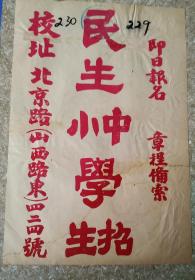 229
230
即日報名 章程備索
民生中小學招生
校址 北京路(山西路東)四二四號